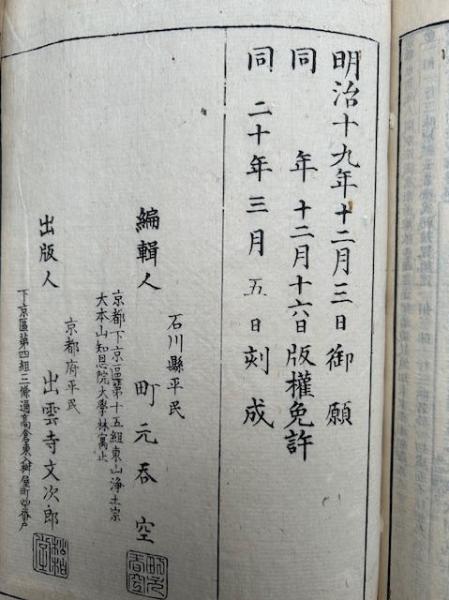 明治十九年十二月三日御願
同　年十二月十六日版權免許
同二十年三月五日刻成
石川縣平民
編輯人　町元呑空
京都下京區第十五組東山淨土宗
大本山知恩院大學林寓止
京都府平民
出版人　出雲寺文次郎
下京區第四組三條通高倉東入桝屋町